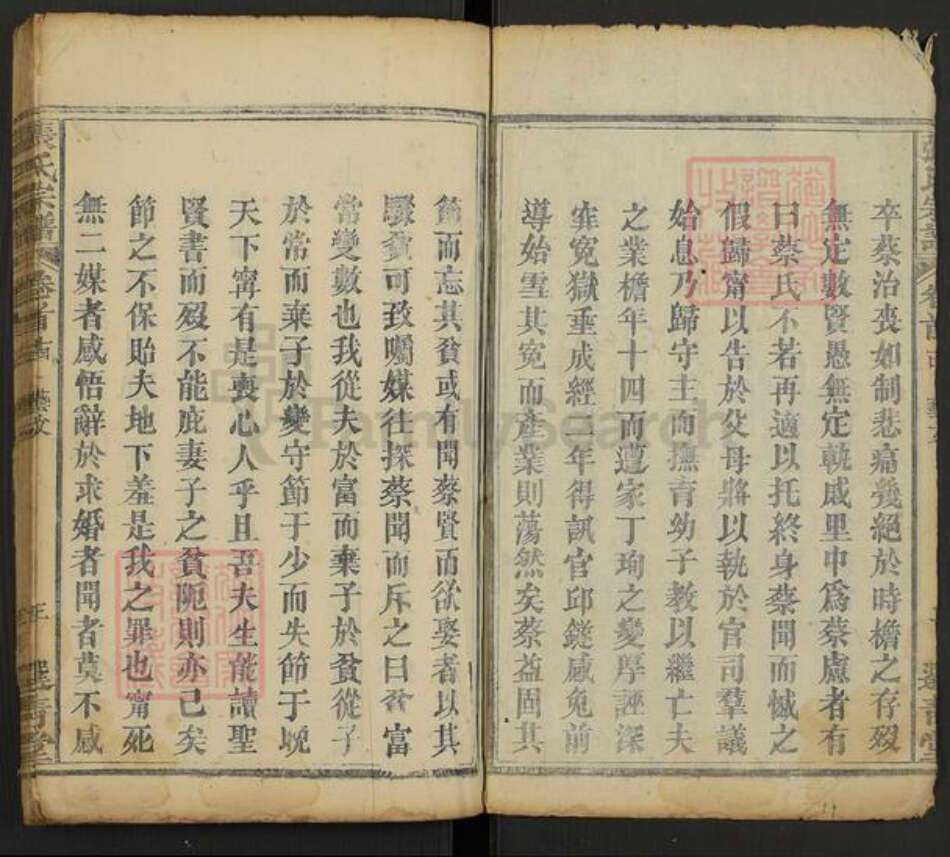 卒蔡治喪如制悲痛幾絕於時檐之存歿
無定數賢愚無定執戚里中爲蔡慮者有
曰蔡氏不若再適以托終身蔡聞而慽之
假歸甯以告於父母將以執於官司羣議
始息乃歸守主而撫育幼子教以繼亡夫
之業檐年十四而遭家丁珣之變厚誣深
寃獄垂成經二年得訊官邱鐩感兔前
導始雪其寃而產業則蕩然矣蔡益固其
節而忘其貧或有聞蔡賢而欲娶者以其
驟貧可致囑媒往探蔡聞而斥之曰貧富
常變數也我從夫於富而棄子於貧從子
於常而棄子於變守節于少而失節于晚
天下甯有是喪心人乎且吾夫生能讀聖
賢書而歿不能庇妻子之貧阨則亦已矣
節之不保貽夫地下羞是我之罪也甯死
無二媒者感悟辭於求婚者聞者莫不感
張氏宗譜 卷首
藝文
選青堂
FamilySearch